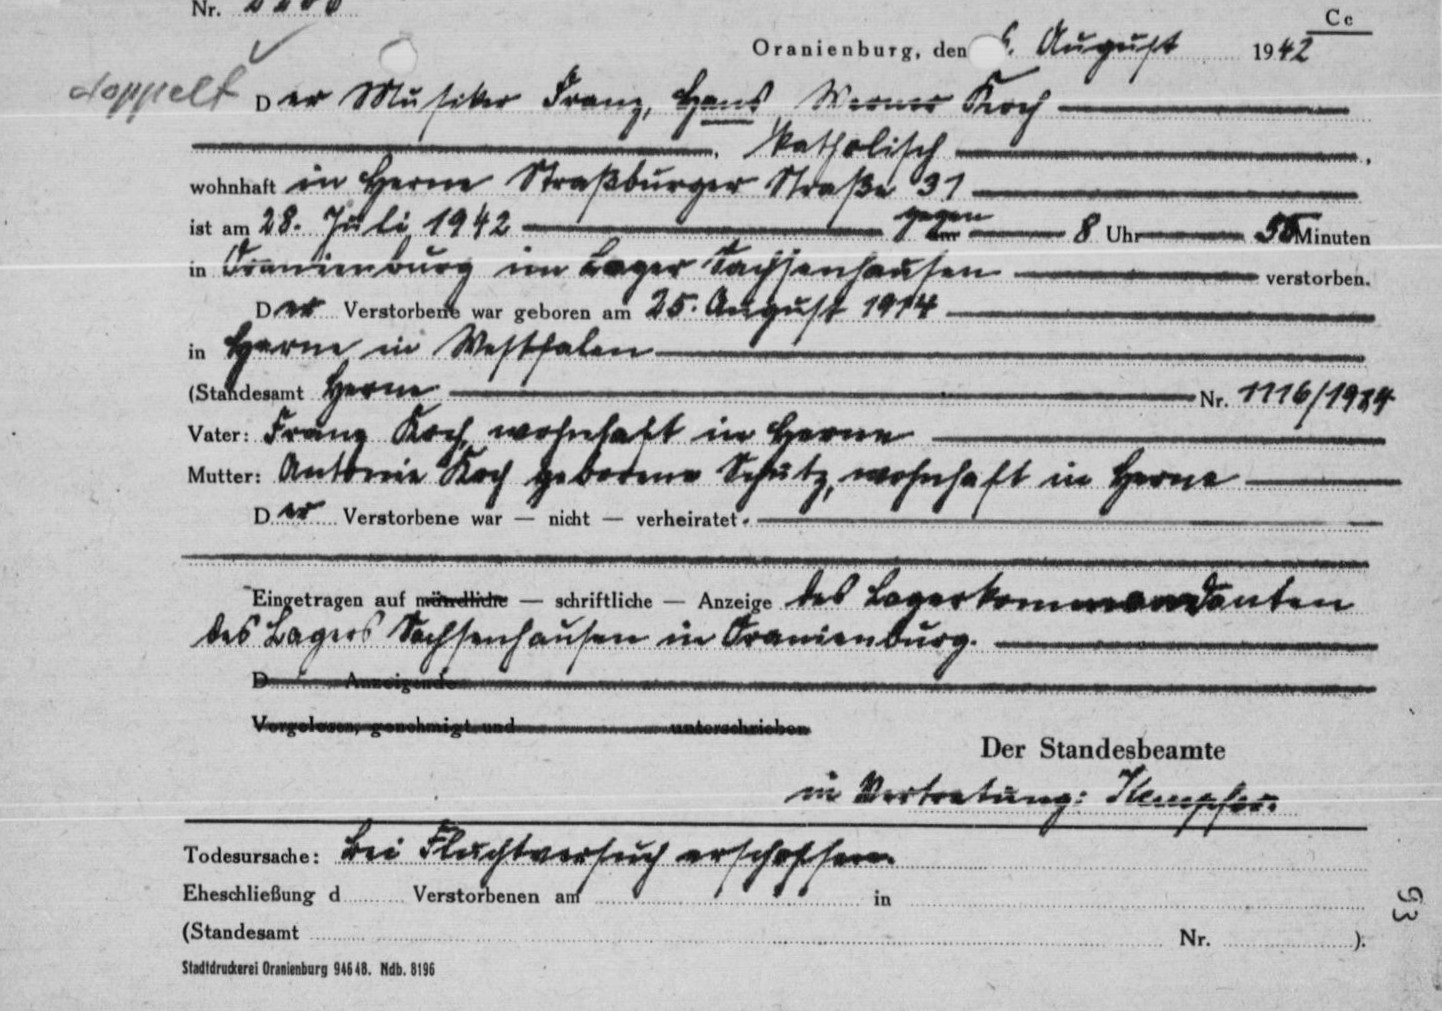 Nr.
Cc
Oranienburg, den 6. August 1942
doppelt
Der Musiker Franz, Hans Werner Koch
, katholisch ,
wohnhaft in Herne Straßburger Straße 31
ist am 28. Juli 1942 gegen um 8 Uhr 50 Minuten
in Oranienburg im Lager Sachsenhausen verstorben.
Der Verstorbene war geboren am 25. August 1914
in Herne in Westfalen
(Standesamt Herne Nr. 1116/1914
Vater: Franz Koch, wohnhaft in Herne
Mutter: Antonie Koch geborene Schutz, wohnhaft in Herne
Der Verstorbene war — nicht — verheiratet.
Eingetragen auf mündliche — schriftliche — Anzeige des Lagerkommandanten
des Lagers Sachsenhausen in Oranienburg.
D Anzeigende
Vorgelesen, genehmigt und unterschrieben
Der Standesbeamte
in Vertretung:
Todesursache: Bei Fluchtversuch erschossen.
Eheschließung d Verstorbenen am in
93
(Standesamt Nr. ).
Stadtdruckerei Oranienburg 946 48. Ndb. 8196